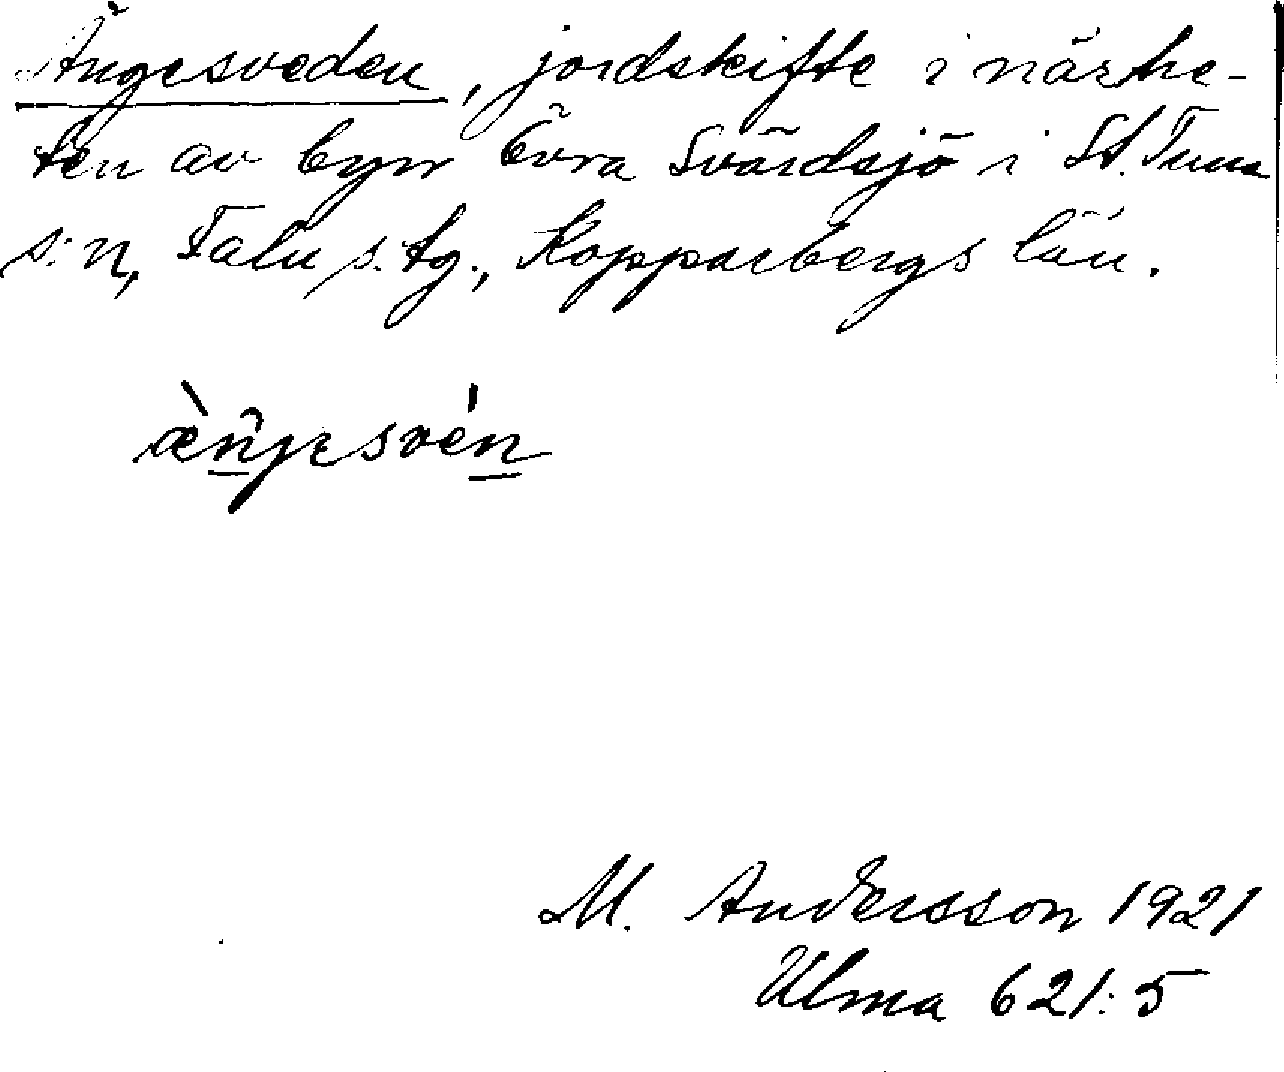 Ängesveden, jordskifte i närhe-
ten av byn Övra Svärdsjö i St. Tuna
s:n, Falu s. tg., Kopparbergs län.
æ̀n̂jesvén
M. Andersson 1921
Ulma 621:5